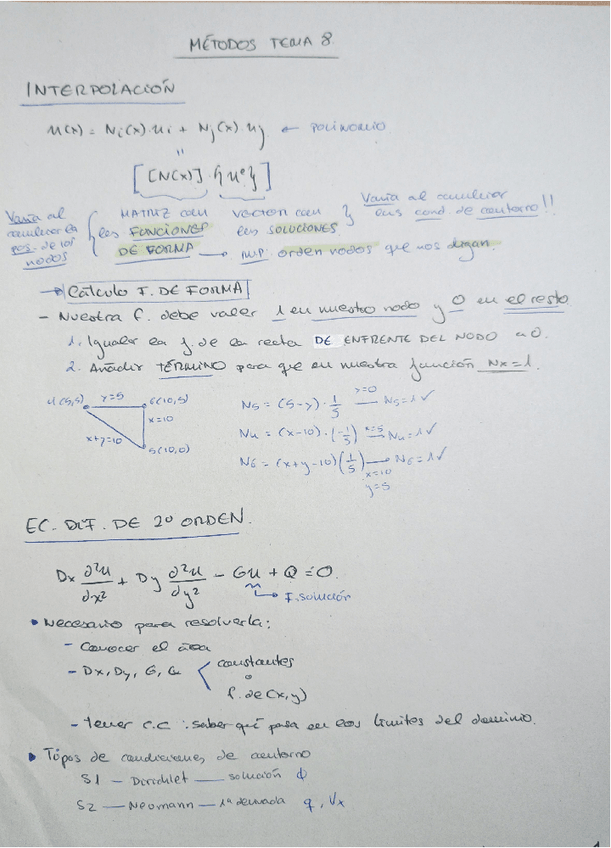 MÉTODOS TEMA 8.
INTERPOLACIÓN
u(x) = Ni(x)·ui + Nj(x)·uj ← POLINOMIO
"
[[N(x)]·{uᵉ}]
Varía al cambiar la pos. de los nodos { MATRIZ con las FUNCIONES DE FORMA
VECTOR con las SOLUCIONES } Varía al cambiar las cond. de contorno!!
→ IMP. orden nodos que nos digan.
→ Cálculo F. DE FORMA
- Nuestra f. debe valer 1 en nuestro nodo y 0 en el resto
1. Igualar la f. de la recta DE ENFRENTE DEL NODO a 0.
2. Añadir TÉRMINO para que en nuestra función Nx=1.
4(5,5) y=5 6(10,5)
x=10
x+y=10
5(10,0)
N5 = (5-y)·1/5 y=0 → N5=1 ✓
N4 = (x-10)·(-1/5) x=5 → N4=1 ✓
N6 = (x+y-10)(1/5) → N6=1 ✓
x=10
y=5
EC. DIF. DE 2º ORDEN.
Dx ∂²u/∂x² + Dy ∂²u/∂y² - Gu + Q = 0.
↳ F. solución
• Necesario para resolverla:
- Conocer el área
- Dx, Dy, G, Q < constantes
o
f. de (x,y)
- Tener c.c : saber qué pasa en los límites del dominio.
• Tipos de condiciones de contorno
S1 — Dirichlet — solución ϕ
S2 — Neumann — 1ª derivada q, Vx